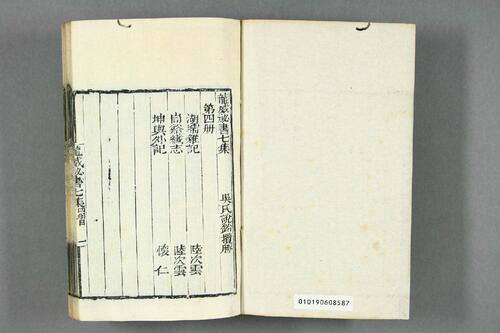 龍威秘書七集 吳氏說鈴攟册
第四册
湖壖雜記 陸次雲
峒谿纖志 陸次雲
坤輿外記 懷仁
龍威秘書七集 一
010190608587